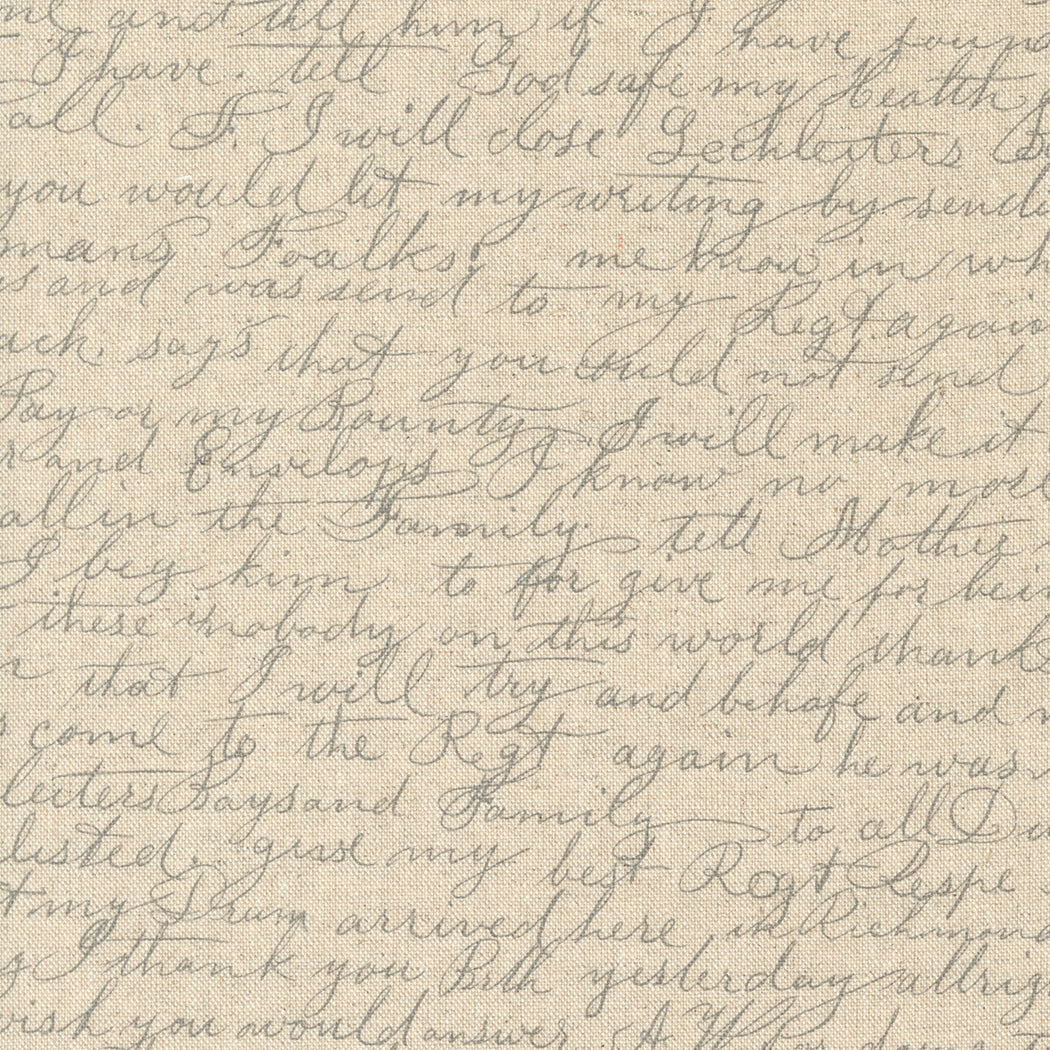 me and tell him if I have foun
I have. tell God safe my Health
all. F. I will close Lechleiters
you would let my writing by sendi
mans Foalks. me know in wh
and was send to my Regt again
ack. says that you could not send
Pay or my Bounty I will make it
r and Envelops I know no more
all in the Family tell Mother
I beg him to for give me for bein
these in nobody on this world thank
that I will try and behafe and
come to the Regt again he was
leiters Pays and Family to all D
listed. give my best Regt Respe
t my Drum arrived here in Richmond
I thank you Bith yesterday allrig
wish you would answer